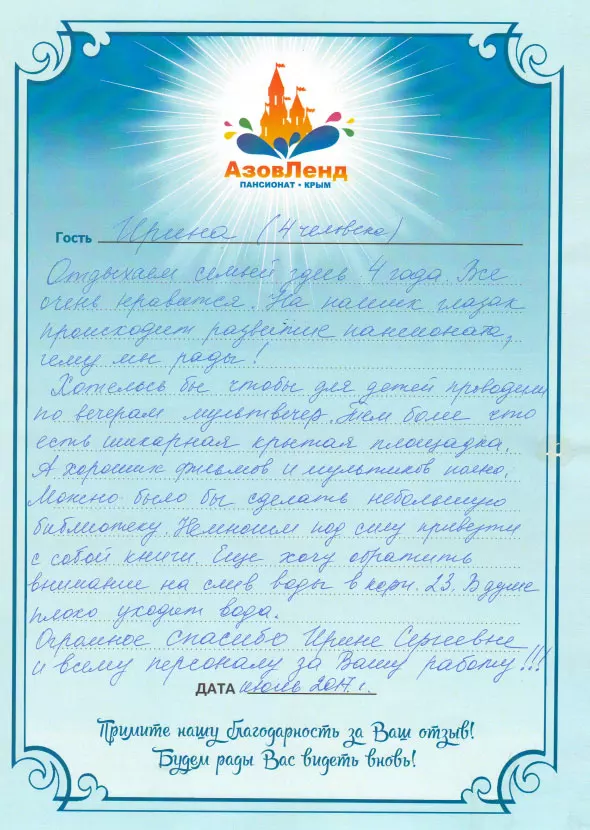 АзовЛенд
ПАНСИОНАТ • КРЫМ
Гость Ирина (4 человека)
Отдыхаем семьёй здесь 4 года. Все
очень нравится. На наших глазах
происходит развитие пансионата,
чему мы рады!
Хотелось бы чтобы для детей проводили
по вечерам мультвечер. Тем более что
есть шикарная крытая площадка.
А хороших фильмов и мультиков полно.
Можно было бы сделать небольшую
библиотеку. Немногим под силу привезти
с собой книги. Еще хочу обратить
внимание на слив воды в корп. 23. В душе
плохо уходит вода.
Огромное спасибо Ирине Сергеевне
и всему персоналу за Вашу работу!!!
ДАТА июль 2017 г.
Примите нашу благодарность за Ваш отзыв!
Будем рады Вас видеть вновь!